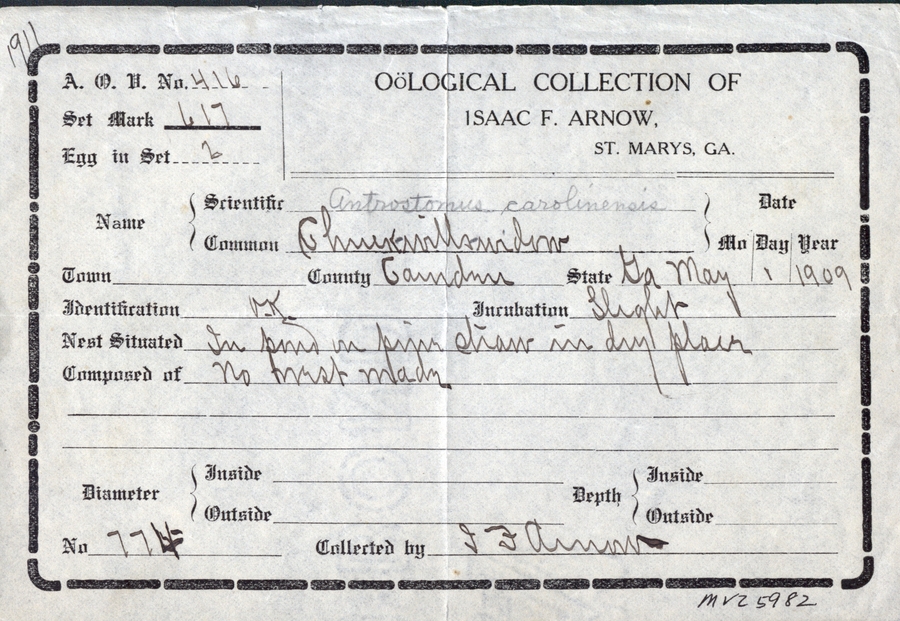 1911
A. O. U. No. 416
OöLOGICAL COLLECTION OF
Set Mark 617
ISAAC F. ARNOW,
Egg in Set 2
ST. MARYS, GA.
Name
Scientific Antrostomus carolinensis
Common Chuckwillswidow
Date
Mo Day Year
Town County Camden State Ga May 1 1909
Identification Incubation Slight
Nest Situated In pond in pine straw in dry place
Composed of No nest made
Diameter
Inside
Outside
Depth
Inside
Outside
No 774 Collected by I F Arnow
MVZ 5982